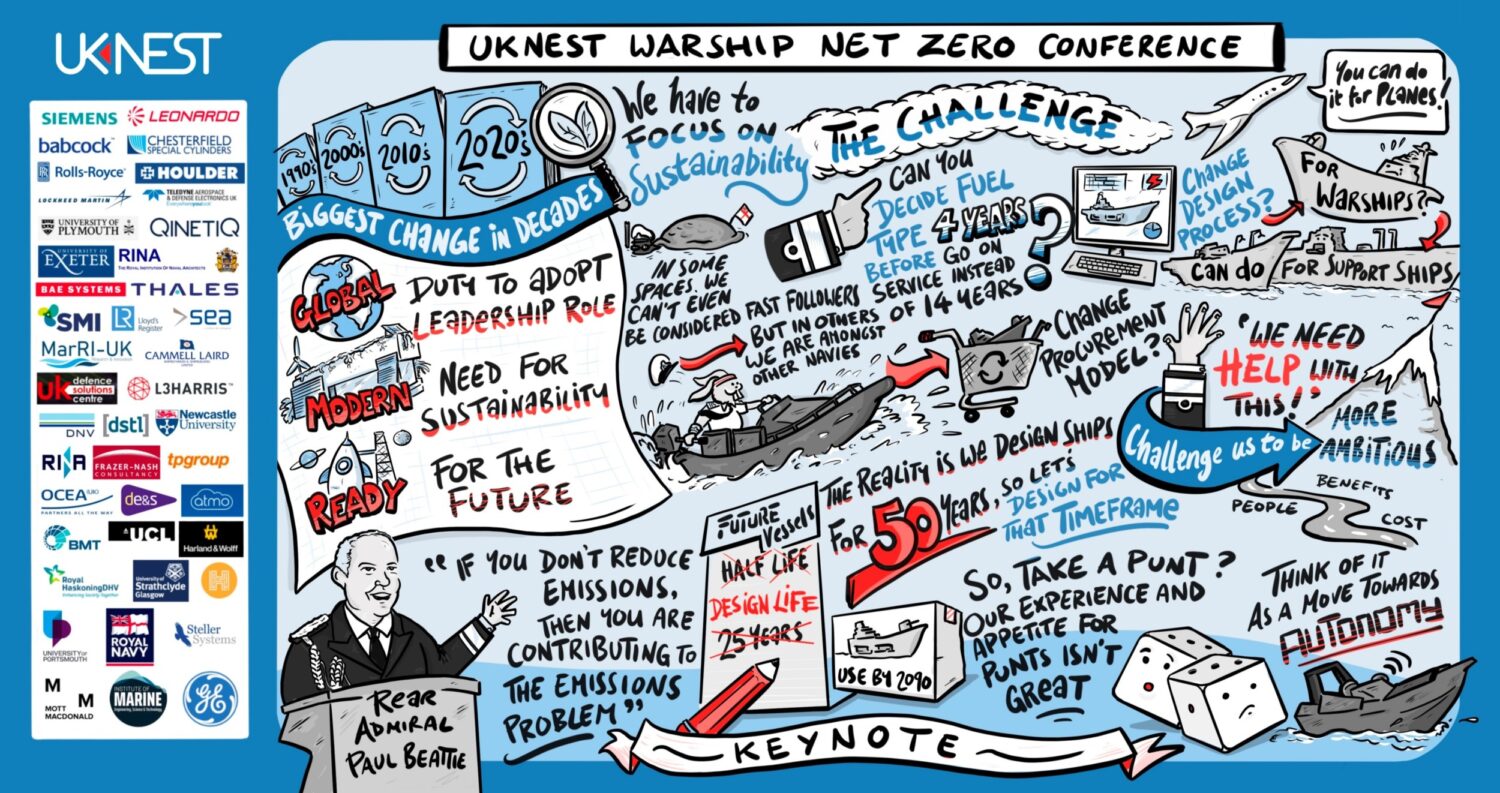 UKNEST
SIEMENS
LEONARDO
babcock™
CHESTERFIELD
SPECIAL CYLINDERS
Rolls-Royce
HOULDER
LOCKHEED MARTIN
TELEDYNE AEROSPACE
& DEFENSE ELECTRONICS UK
Everywhereyoulook
UNIVERSITY OF
PLYMOUTH
QINETIQ
UNIVERSITY OF
EXETER
RINA
THE ROYAL INSTITUTION OF NAVAL ARCHITECTS
BAE SYSTEMS
THALES
SMI
LR
Lloyd's
Register
sea
MarRI-UK
CAMMELL LAIRD
uk defence
solutions
centre
L3HARRIS™
DNV
[dstl]
Newcastle
University
RINA
FRAZER-NASH
CONSULTANCY
tpgroup
OCEA (UK)
PARTNERS ALL THE WAY
de&s
atmo
BMT
UCL
Harland & Wolff
Royal
HaskoningDHV
Enhancing Society Together
University of
Strathclyde
Glasgow
UNIVERSITY OF
PORTSMOUTH
ROYAL
NAVY
Steller
Systems
M
M
MOTT
MACDONALD
INSTITUTE OF
MARINE
Engineering, Science & Technology
GE
UKNEST WARSHIP NET ZERO CONFERENCE
1990's
2000's
2010's
2020's
BIGGEST CHANGE in DECADES
GLOBAL
DUTY TO ADOPT
LEADERSHIP ROLE
MODERN
NEED FOR
SUSTAINABILITY
READY
FOR THE
FUTURE
We have to
FOCUS ON
Sustainability
THE CHALLENGE
CAN YOU
DECIDE FUEL
TYPE 4 YEARS
BEFORE GO ON
SERVICE INSTEAD
OF 14 YEARS
?
IN SOME
SPACES. WE
CAN'T EVEN
BE CONSIDERED FAST FOLLOWERS
BUT IN OTHERS
WE ARE AMONGST
OTHER NAVIES
CHANGE
DESIGN
PROCESS?
You can do
it for PLANES!
FOR
WARSHIPS??
CAN DO
FOR SUPPORT SHIPS
CHANGE
PROCUREMENT
MODEL?
"WE NEED
HELP WITH
THIS!"
Challenge us to be
MORE
AMBITIOUS
PEOPLE
BENEFITS
COST
THE REALITY IS WE DESIGN SHIPS
FOR 50 YEARS, SO LET'S
DESIGN FOR
THAT TIMEFRAME
FUTURE
VESSELS
HALF LIFE
DESIGN LIFE
25 YEARS
USE BY 2090
SO, TAKE A PUNT?
OUR EXPERIENCE AND
APPETITE FOR
PUNTS ISN'T
GREAT
THINK OF IT
AS A MOVE TOWARDS
AUTONOMY
"IF YOU DON'T REDUCE
EMISSIONS,
THEN YOU ARE
CONTRIBUTING TO
THE EMISSIONS
PROBLEM"
REAR
ADMIRAL
PAUL BEATTIE
KEYNOTE